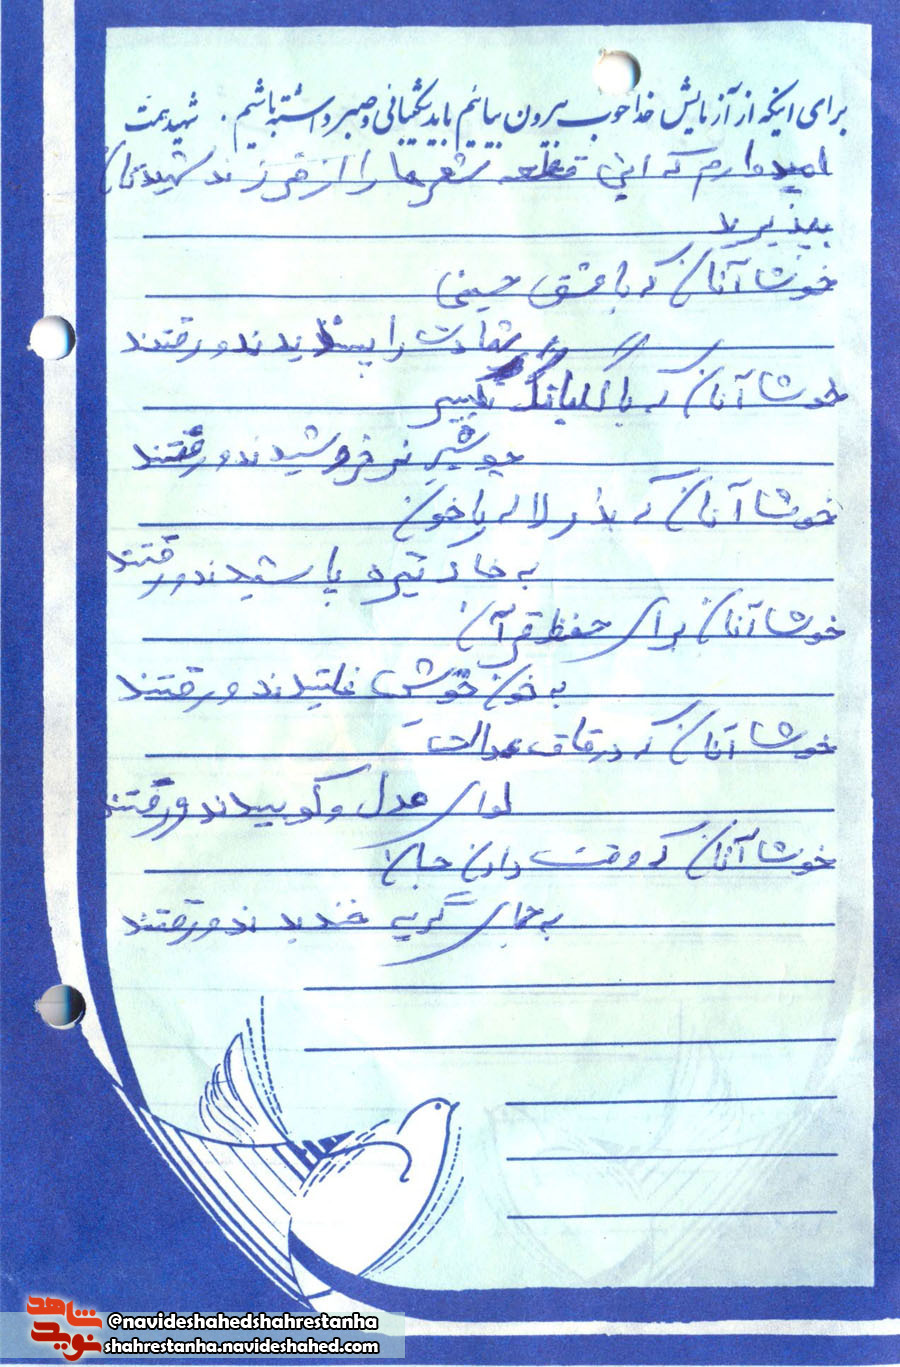 برای اینکه از آزمایش خدا خوب بیرون بیائیم باید شکیبائی و صبر داشته باشیم. شهید همت
امیدوارم که این قطعه شعرها را از فرزند شهیدتان
بپذیرید
خوشا آنان که با عشق حسینی
شهادت را پسندیدند و رفتند
خوشا آنان که با گلبانگ تکبیر
چو شیر نر خروشیدند و رفتند
خوشا آنان که بذر لاله با خون
به خاک تیره پاشیدند و رفتند
خوشا آنان برای حفظ قرآن
به خون خویش غلتیدند و رفتند
خوشا آنان که در قاف عدالت
لوای عدل و کوبیدند و رفتند
خوشا آنان که وقت دادن جان
به جای گریه خندیدند و رفتند
شاهد
نوید
@navideshahedshahrestanha
shahrestanha.navideshahed.com